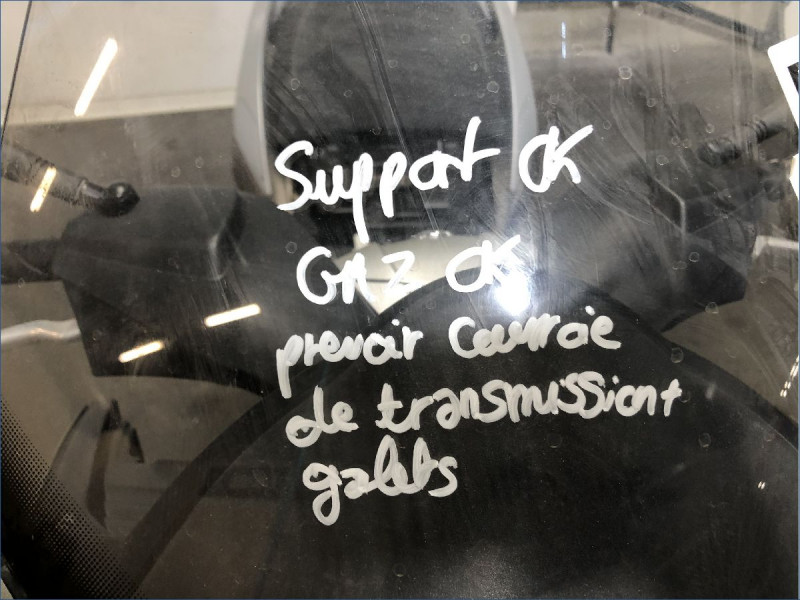 Support OK
GAZ OK
prevoir Courroie
de transmission +
galets